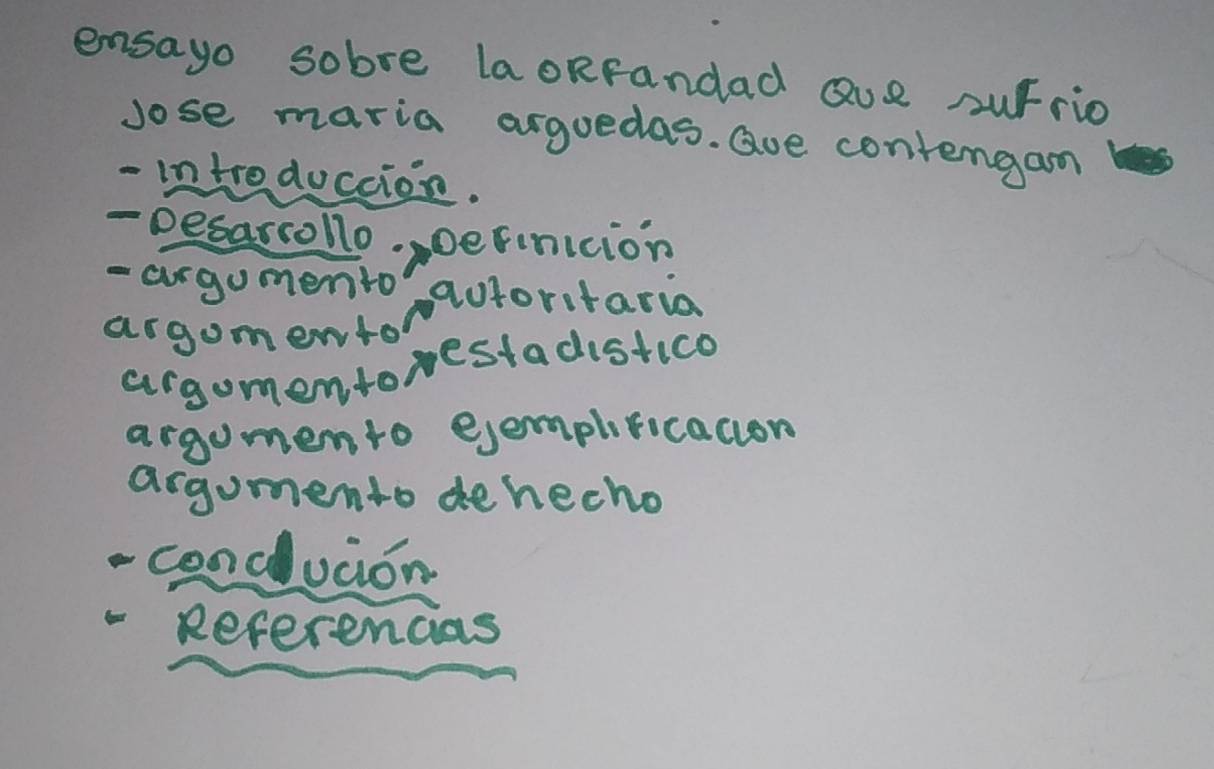 ensayo sobre la orfandad que sufrio
Jose maria arguedas. Que contengan
- Introducción.
- Desarrollo.
- argumento definición
argumento autoritaria
argumento estadistico
argumento ejemplificacion
argumento de hecho
- conclución
- Referencias